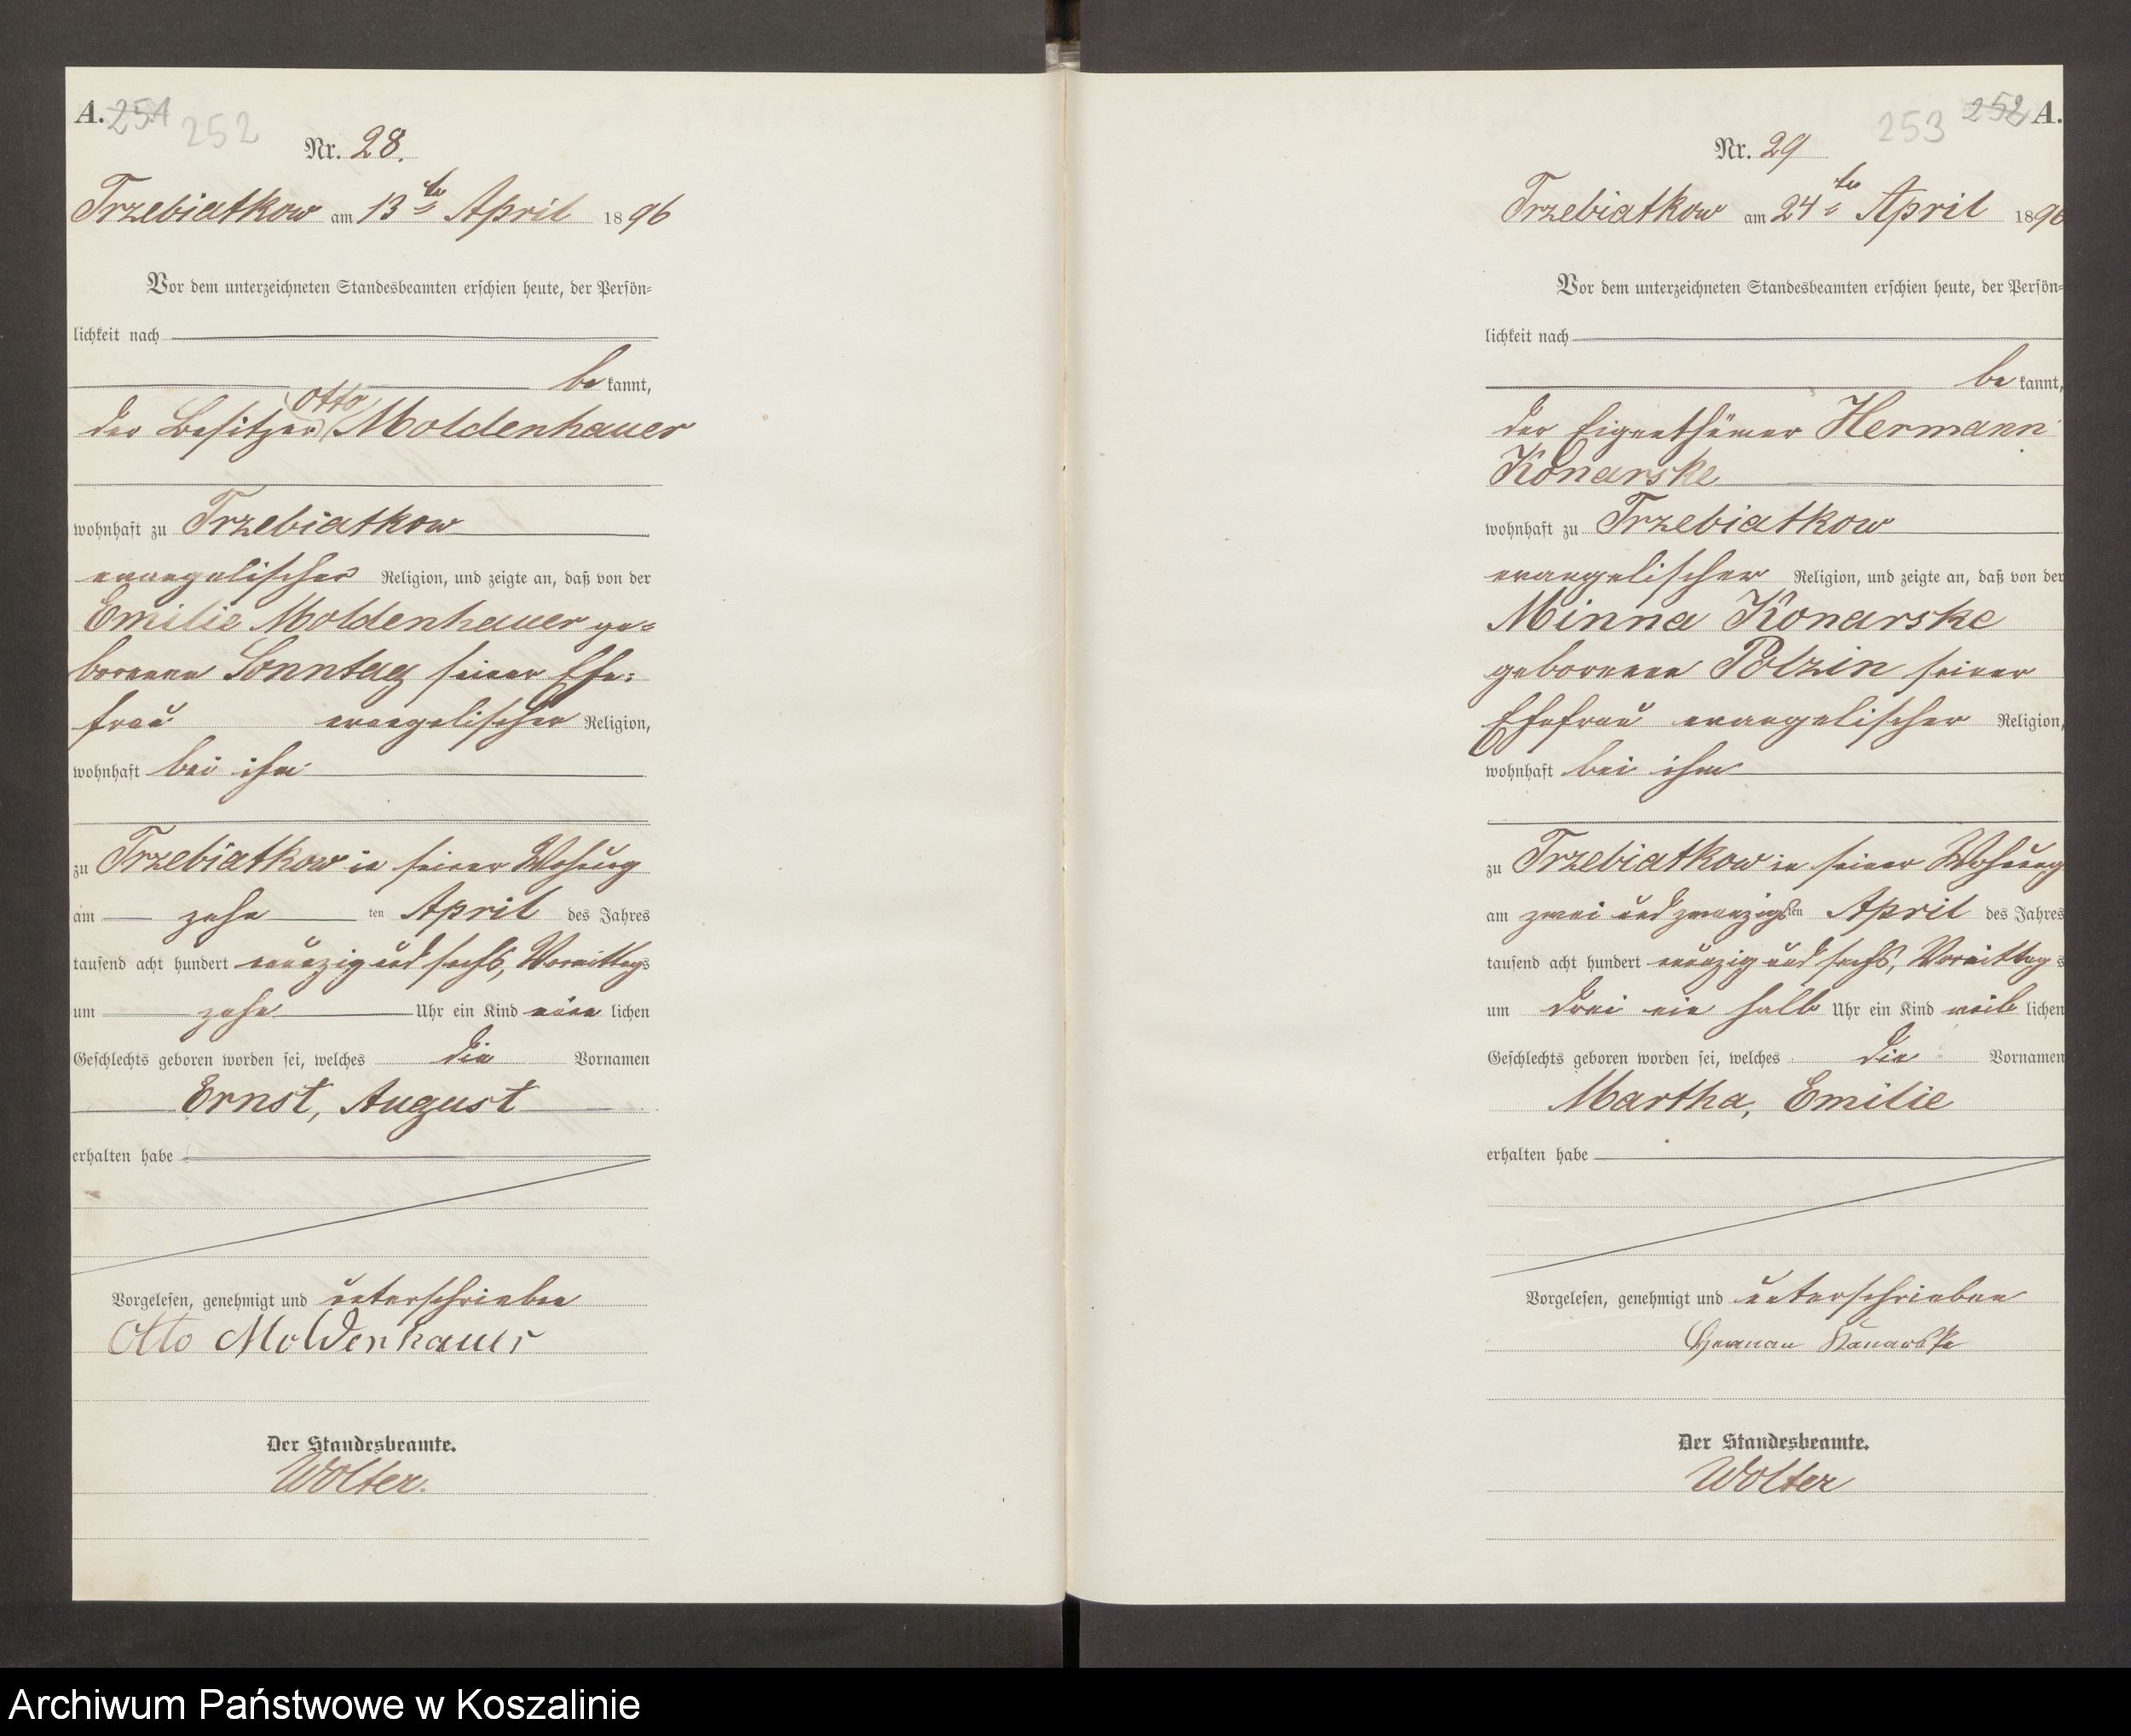 A. 251 252
Nr. 28.
Trzebiatkow am 13ten April 1896
Vor dem unterzeichneten Standesbeamten erschien heute, der Persön-
lichkeit nach
be kannt,
Otto
der Besitzer Moldenhauer
wohnhaft zu Trzebiatkow
evangelischer Religion, und zeigte an, daß von der
Emilie Moldenhauer ge-
borenen Sonntag seiner Ehe-
frau evangelischer Religion,
wohnhaft bei ihm
zu Trzebiatkow in seiner Wohnung
am zehn ten April des Jahres
tausend acht hundert neunzig und sechs, Vormittags
um zehn Uhr ein Kind männ lichen
Geschlechts geboren worden sei, welches die Vornamen
Ernst, August
erhalten habe
Vorgelesen, genehmigt und unterschrieben
Otto Moldenhauer
Der Standesbeamte.
Wolter.
253 252 A.
Nr. 29
Trzebiatkow am 24ten April 1896
Vor dem unterzeichneten Standesbeamten erschien heute, der Persön-
lichkeit nach
be kannt,
der Eigenthümer Hermann
Konarske
wohnhaft zu Trzebiatkow
evangelischer Religion, und zeigte an, daß von der
Minna Konarske
geborenen Polzin seiner
Ehefrau evangelischer Religion,
wohnhaft bei ihm
zu Trzebiatkow in seiner Wohnung
am zwei und zwanzigsten April des Jahres
tausend acht hundert neunzig und sechs, Vormittags
um drei ein halb Uhr ein Kind weib lichen
Geschlechts geboren worden sei, welches die Vornamen
Martha, Emilie
erhalten habe
Vorgelesen, genehmigt und unterschrieben
Herman Konarske
Der Standesbeamte.
Wolter
Archiwum Państwowe w Koszalinie